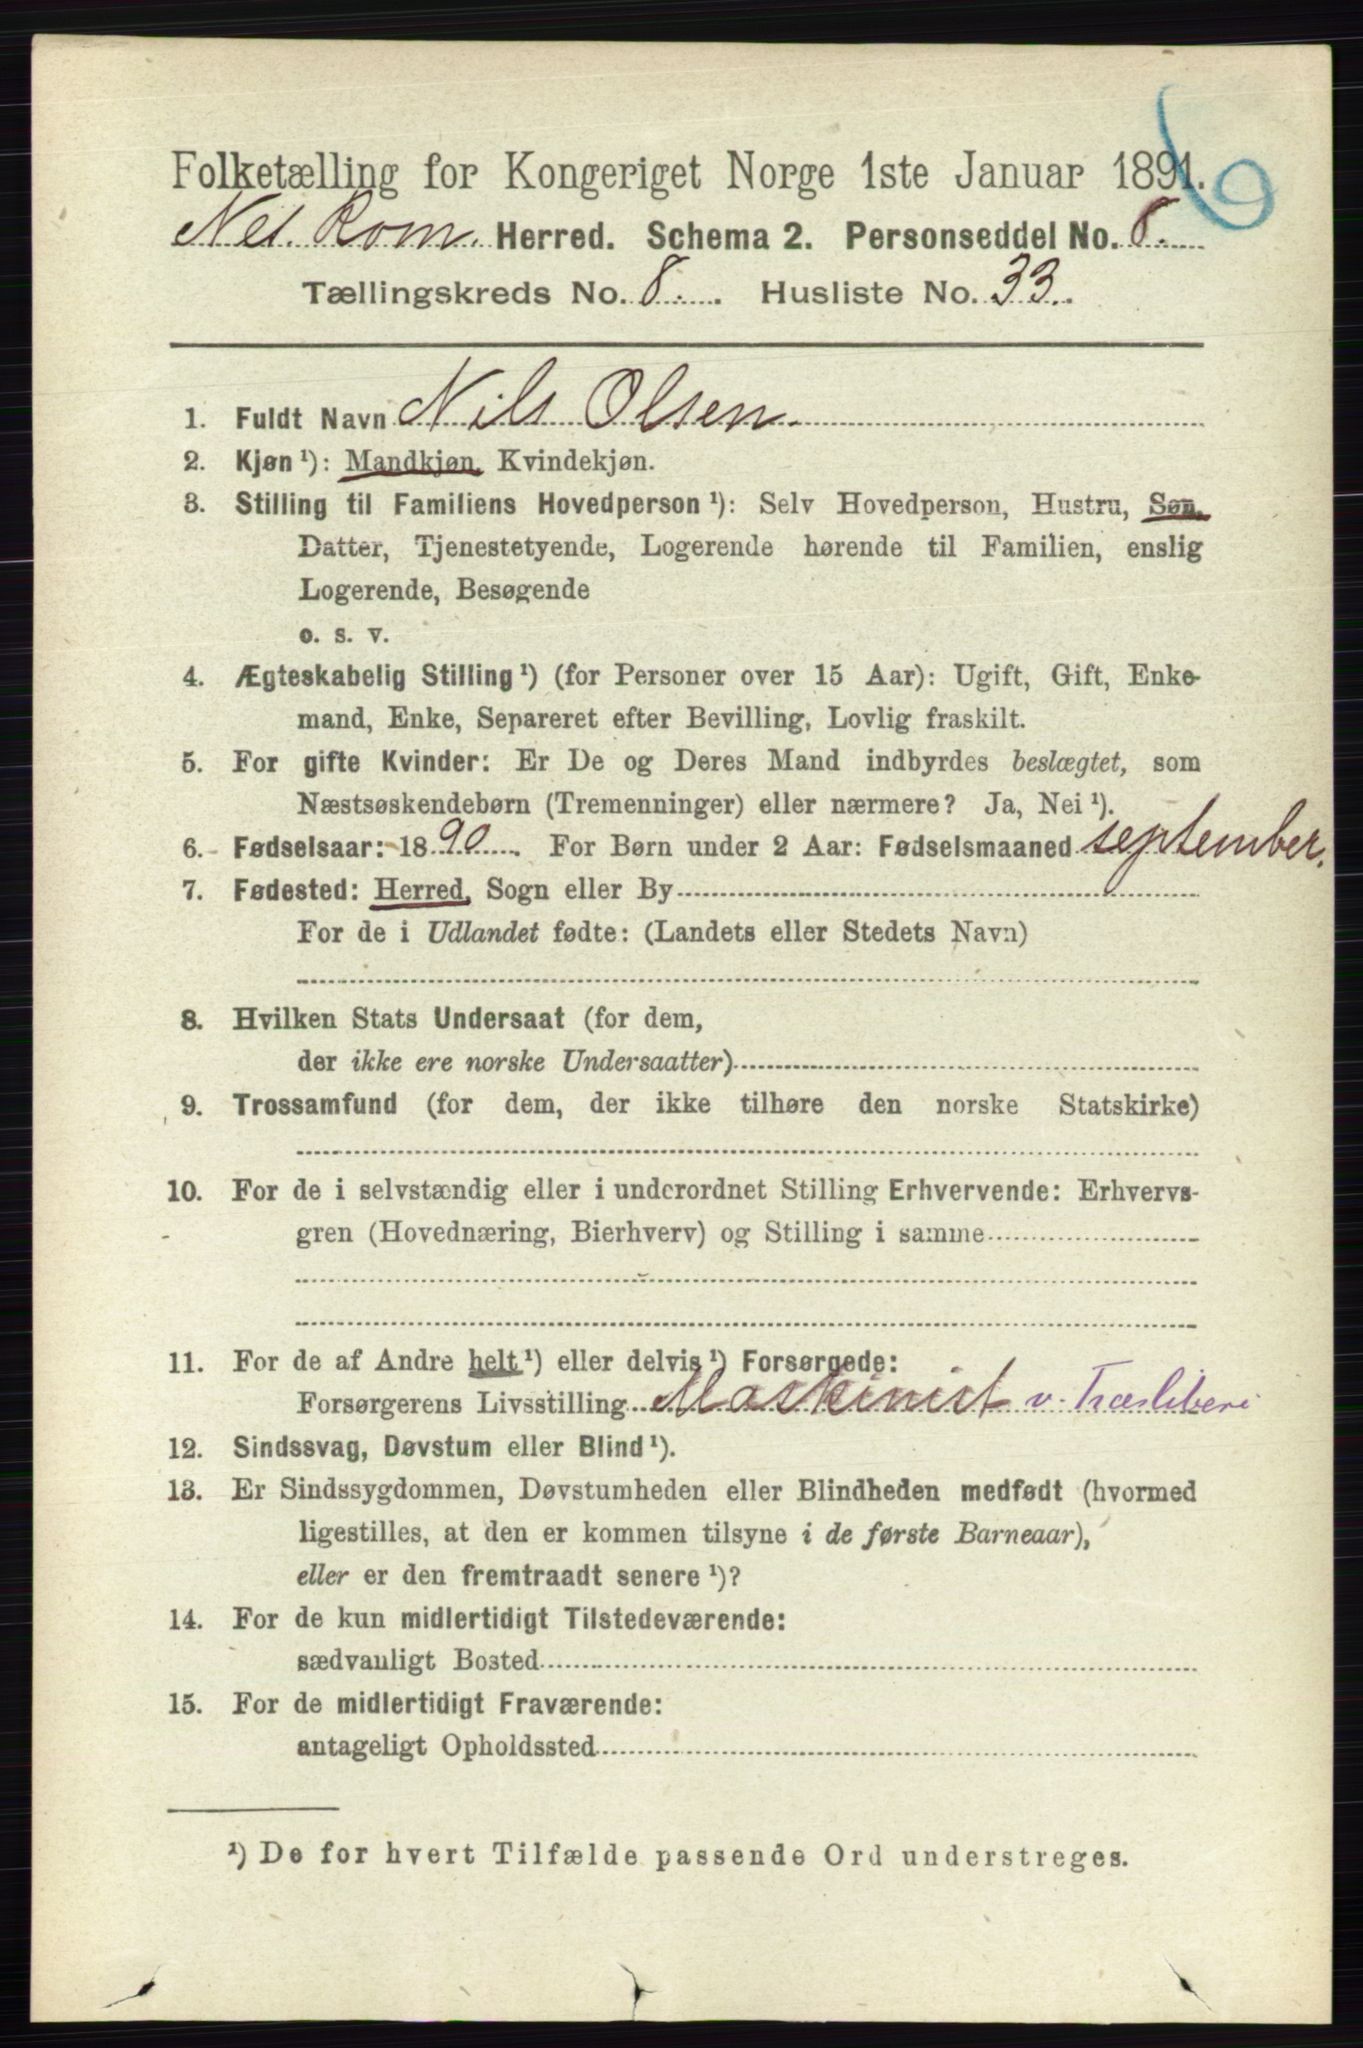 Folketælling for Kongeriget Norge 1ste Januar 1891.
Ned. Rom. Herred. Schema 2. Personseddel No. 8.
Tællingskreds No. 8. Husliste No. 33.
1. Fuldt Navn Nils Olsen.
2. Kjøn ¹): Mandkjøn, Kvindekjøn.
3. Stilling til Familiens Hovedperson ¹): Selv Hovedperson, Hustru, Søn,
Datter, Tjenestetyende, Logerende hørende til Familien, enslig
Logerende, Besøgende
o. s. v.
4. Ægteskabelig Stilling ¹) (for Personer over 15 Aar): Ugift, Gift, Enke-
mand, Enke, Separeret efter Bevilling, Lovlig fraskilt.
5. For gifte Kvinder: Er De og Deres Mand indbyrdes beslægtet, som
Næstsøskendebørn (Tremenninger) eller nærmere? Ja, Nei ¹).
6. Fødselsaar: 1890. For Børn under 2 Aar: Fødselsmaaned september.
7. Fødested: Herred, Sogn eller By
For de i Udlandet fødte: (Landets eller Stedets Navn)
8. Hvilken Stats Undersaat (for dem,
der ikke ere norske Undersaatter)
9. Trossamfund (for dem, der ikke tilhøre den norske Statskirke)
10. For de i selvstændig eller i underordnet Stilling Erhvervende: Erhvervs-
gren (Hovednæring, Bierhverv) og Stilling i samme
11. For de af Andre helt ¹) eller delvis ¹) Forsørgede:
Forsørgerens Livsstilling Maskinist v. Træsliberi
12. Sindssvag, Døvstum eller Blind ¹).
13. Er Sindssygdommen, Døvstumheden eller Blindheden medfødt (hvormed
ligestilles, at den er kommen tilsyne i de første Barneaar),
eller er den fremtraadt senere ¹)?
14. For de kun midlertidigt Tilstedeværende:
sædvanligt Bosted
15. For de midlertidigt Fraværende:
antageligt Opholdssted
¹) De for hvert Tilfælde passende Ord understreges.